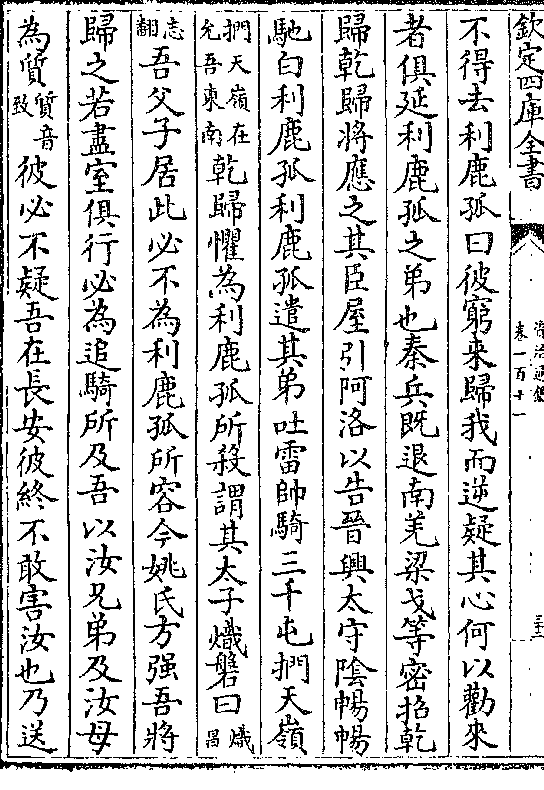 欽定四庫全書
資治通鑑
卷一百十一
三十三
不得去利鹿孤曰彼窮來歸我而逆疑其心何以勸來
者俱延利鹿孤之弟也秦兵既退南羌梁戈等密招乾
歸乾歸將應之其臣屋引阿洛以告晉興太守陰暢暢
馳白利鹿孤利鹿孤遣其弟吐雷帥騎三千屯捫天嶺
捫天嶺在允吾東南乾歸懼為利鹿孤所殺謂其太子熾磐曰熾昌
志翻吾父子居此必不為利鹿孤所容今姚氏方强吾將
歸之若盡室俱行必為追騎所及吾以汝兄弟及汝母
為質質音致彼必不疑吾在長安彼終不敢害汝也乃送